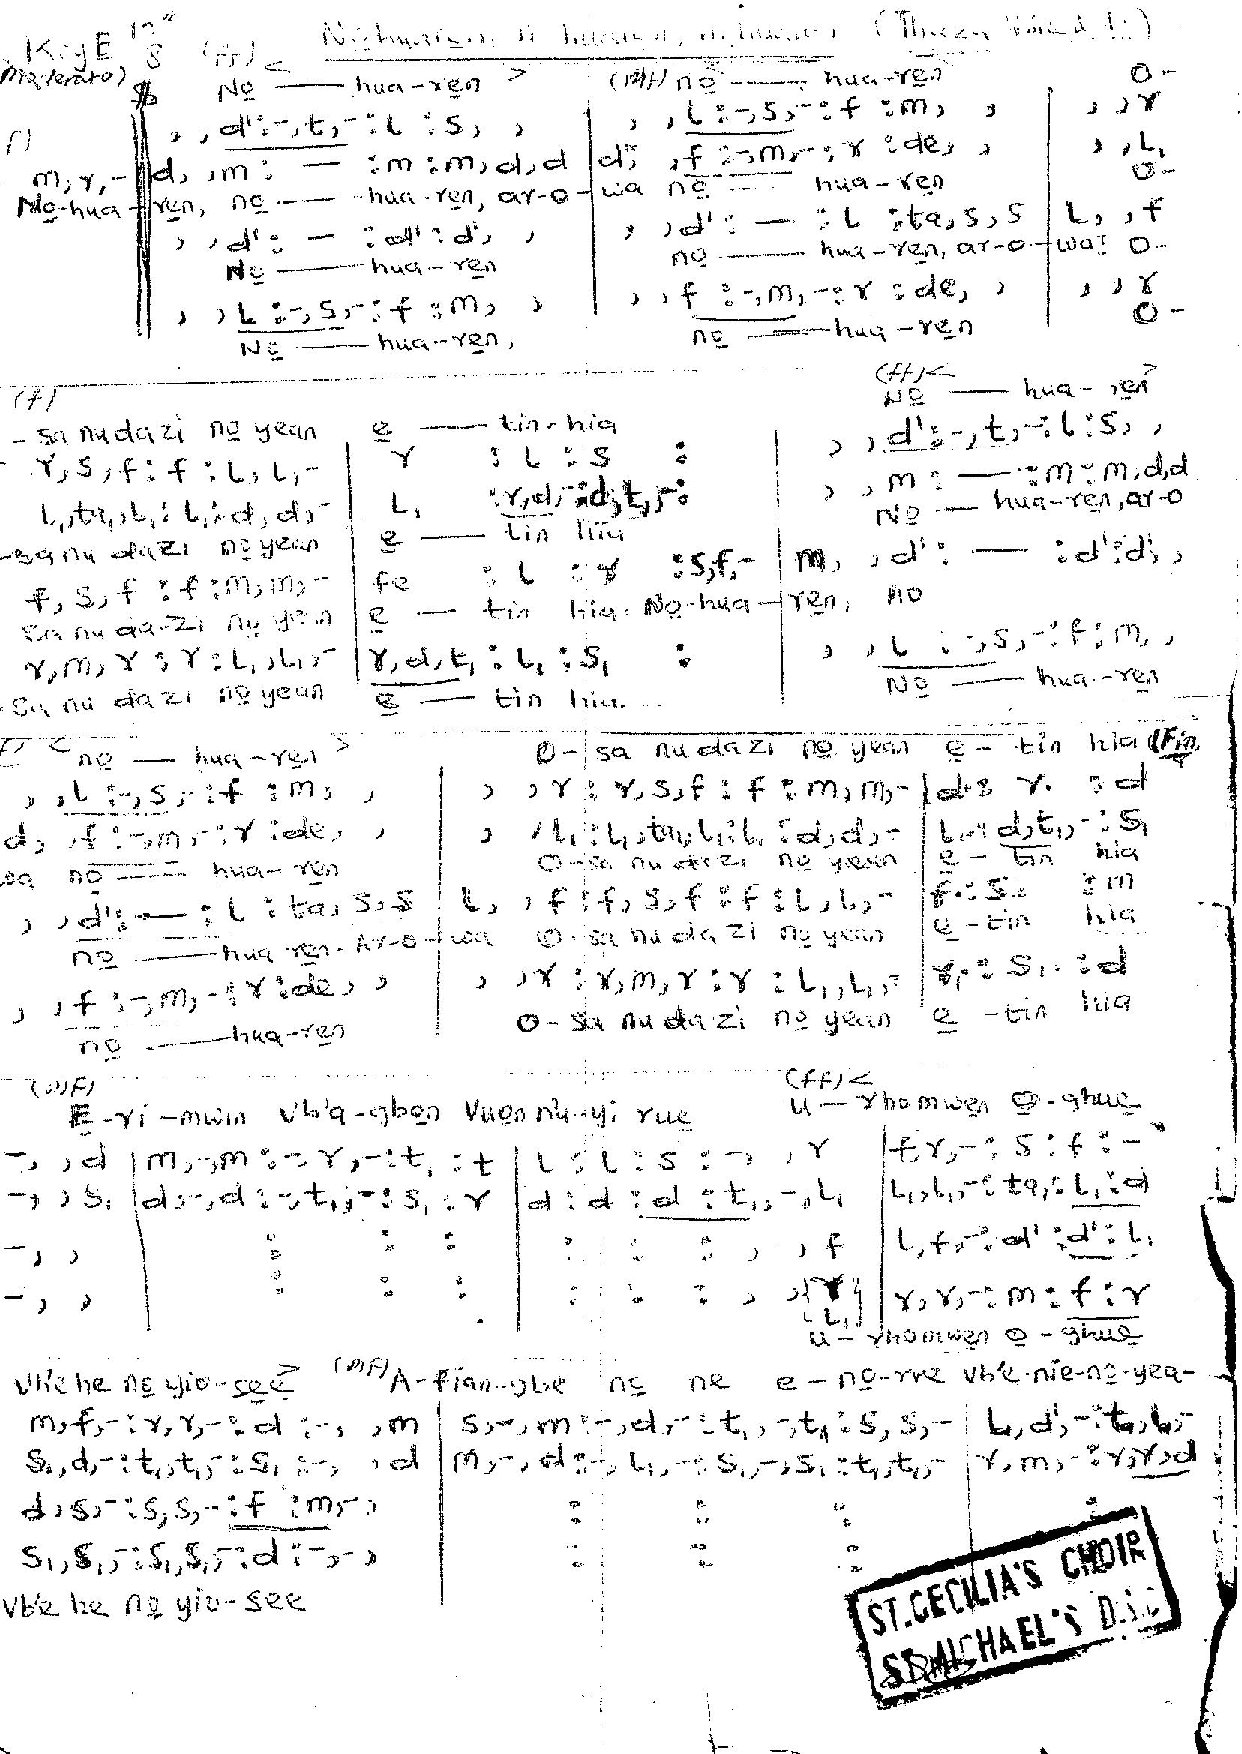 Key E 12/8 (ff) < Nohuaren (Three
(Moderato) No — hua-ren > (mf) no — hua-ren O-
, , d':-,t,-:l :s, , | , , l:-,s,-:f :m, , | , ,r
f)
m,r,-|d, ,m: — :m :m,d,d |d, ,f:-,m,-:r :de, , | , ,l₁
No-hua-ren, no — hua-ren, ar-o-wa no — hua-ren O-
, , d': — :d':d', , | , ,d': — :l :ta,s,s |l, ,f
No — hua-ren no — hua-ren, ar-o-wa! O-
, , l:-,s,-:f :m, , | , , f:-,m,-:r :de, , | , ,r
No — hua-ren, no — hua-ren O-
(f) (ff) <
No — hua-ren >
-sa nu dazi no yean e — tin-hia
r,s,f:f:l,l,- | r :l :s : | , ,d':-,t,-:l:s, ,
l₁,ta₁,l₁:l₁:d,d,- | l₁ :r,d,-:d,t₁,-: | , ,m: — :m:m,d,d
-sa nu dazi no yean e — tin hia No — hua-ren, ar-o
f,s,f:f:m,m,- | fe :l :r :s,f,- | m, ,d': — :d':d', ,
sa nu da-zi no yean e — tin hia. No-hua-ren, no
r,m,r:r:l₁,l₁,- | r,d,t₁:l₁:s₁ : | , ,l:-,s,-:f:m, ,
-sa nu dazi no yean e — tin hia. No — hua-ren
< no — hua-ren > O-sa nu dazi no yean e-tin hia (Fin
, ,l:-,s,-:f :m, , | , ,r:r,s,f:f:m,m,-|d: r. :d
d, ,f:-,m,-:r:de, , | , ,l₁:l₁,ta₁,l₁:l₁:d,d,- |l₁:d,t₁,-:s₁
wa no — hua-ren O-sa nu dazi no yean e-tin hia
, ,d':—:l :ta,s,s |l, ,f:f,s,f:f:l,l,- |f:s. :m
no — hua ren. Ar-o-wa O-sa nu da zi no yean e-tin hia
, ,f:-,m,-:r:de, , | , ,r:r,m,r:r:l₁,l₁,- |r.:s₁.:d
no — hua-ren O-sa nu dazi no yean e-tin hia
(mf) (ff) <
E-ri-mwin vb'a-gbon Vuen n'u-yi rue u-rhomwen o-ghue
-, ,d |m,-,m:-,r,-:t₁:t |l:l:s:-, ,r |f,r,-:s:f:-
-, ,s₁ |d,-,d:-,t₁,-:s₁:r |d:d:d:t₁,-,l₁ |l₁,l₁,-:ta₁:l₁:d
-, , | : : : | : : : , ,f |l,f,-:d':d':l.
-, , | : : : | : : : , ,(r l₁) |r,r,-:m:f:r
u-rhomwen o-ghue
vb'e he no yio-see > (mf) A-fian-gbe no ne e-no-rre vb'e-nie-no-yea-
m,f,-:r,r,-:d:-, ,m |s,-,m:-,d,-:t₁,-,t₁:s,s,- |l,d',-:t,l,-
s₁,d,-:t₁,t₁,-:s₁:-, ,d |m,-,d:-,l₁,-:s₁,-,s₁:t₁,t₁,- |r,m,-:r,r,d
d,s,-:s,s,-:f:m,-, | : : : | :
s₁,s₁,-:s₁,s₁,-:d:-,-, | : : :
vb'e he no yio-see
ST. CECILIA'S CHOIR
ST. MICHAEL'S